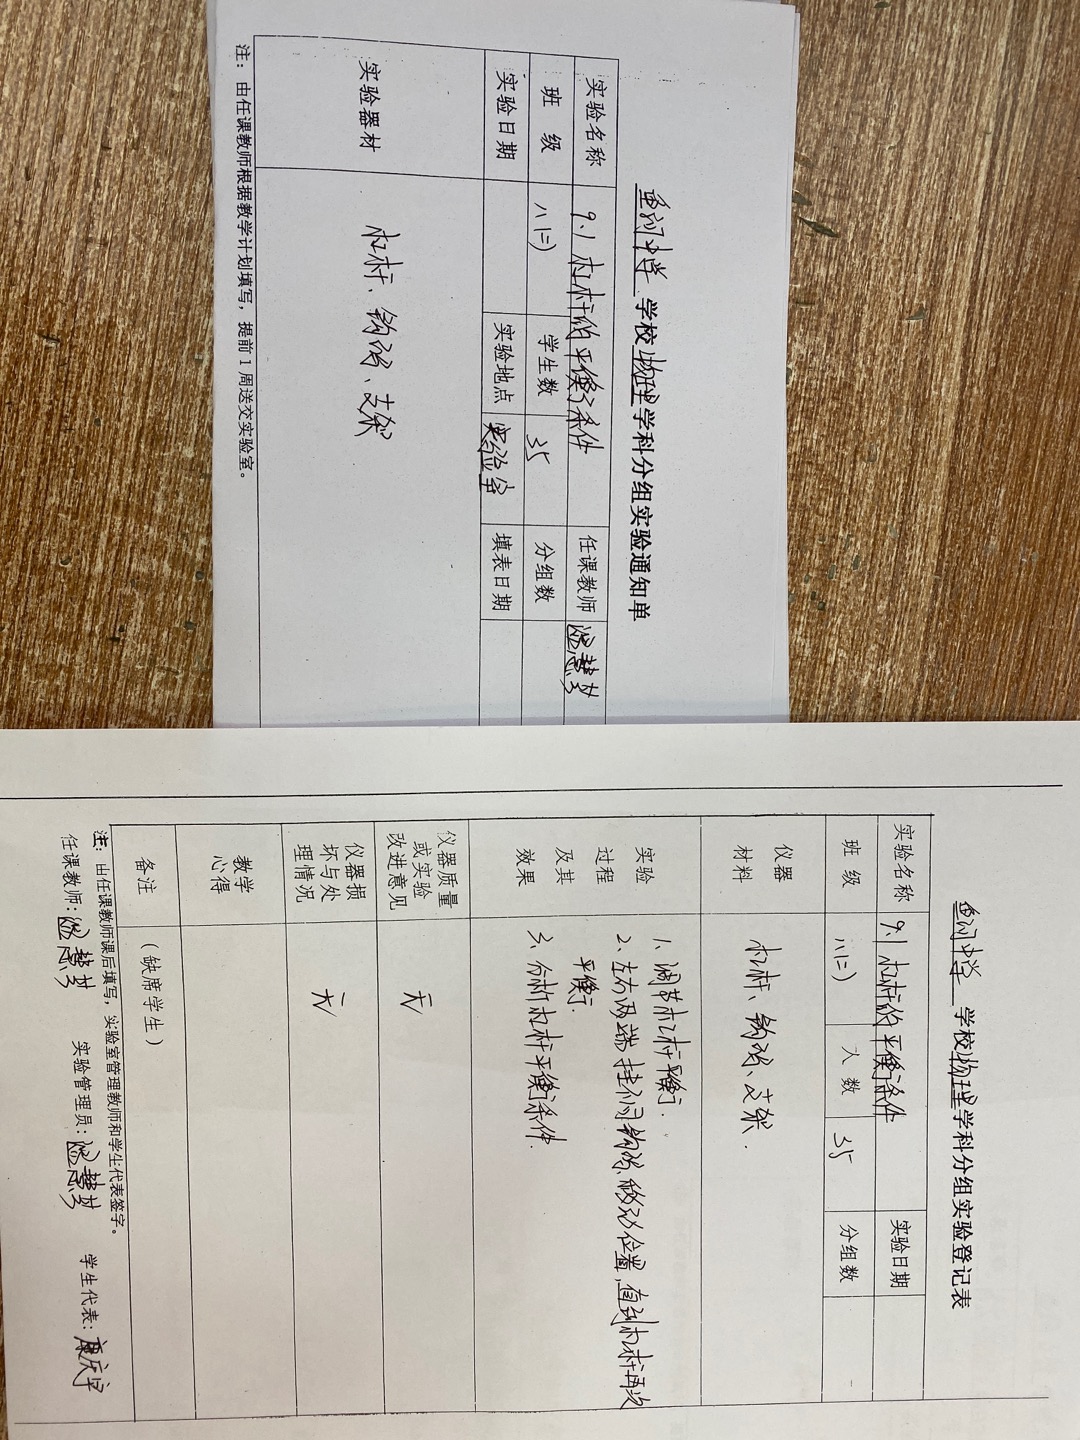 鱼河中学 学校物理学科分组实验通知单
实验名称 9.1 杠杆的平衡条件 任课教师
班 级 八(二) 学生数 35 分组数
实验日期 实验地点 实验室 填表日期
实验器材 杠杆、钩码、支架
注：由任课教师根据教学计划填写，提前1周送交实验室。
鱼河中学 学校物理学科分组实验登记表
实验名称 9.1 杠杆的平衡条件 实验日期
班 级 八(二) 人数 35 分组数
仪器材料 杠杆、钩码、支架.
实验过程及其效果
1、调节杠杆平衡.
2、左右两端挂不同钩码、移动位置,直到杠杆再次
平衡.
3、分析杠杆平衡条件
仪器质量或实验改进意见 无
仪器损坏与处理情况 无
教学心得
备注 （缺席学生）
注：由任课教师课后填写，实验室管理教师和学生代表签字。
任课教师： 实验管理员： 学生代表：康庆宇